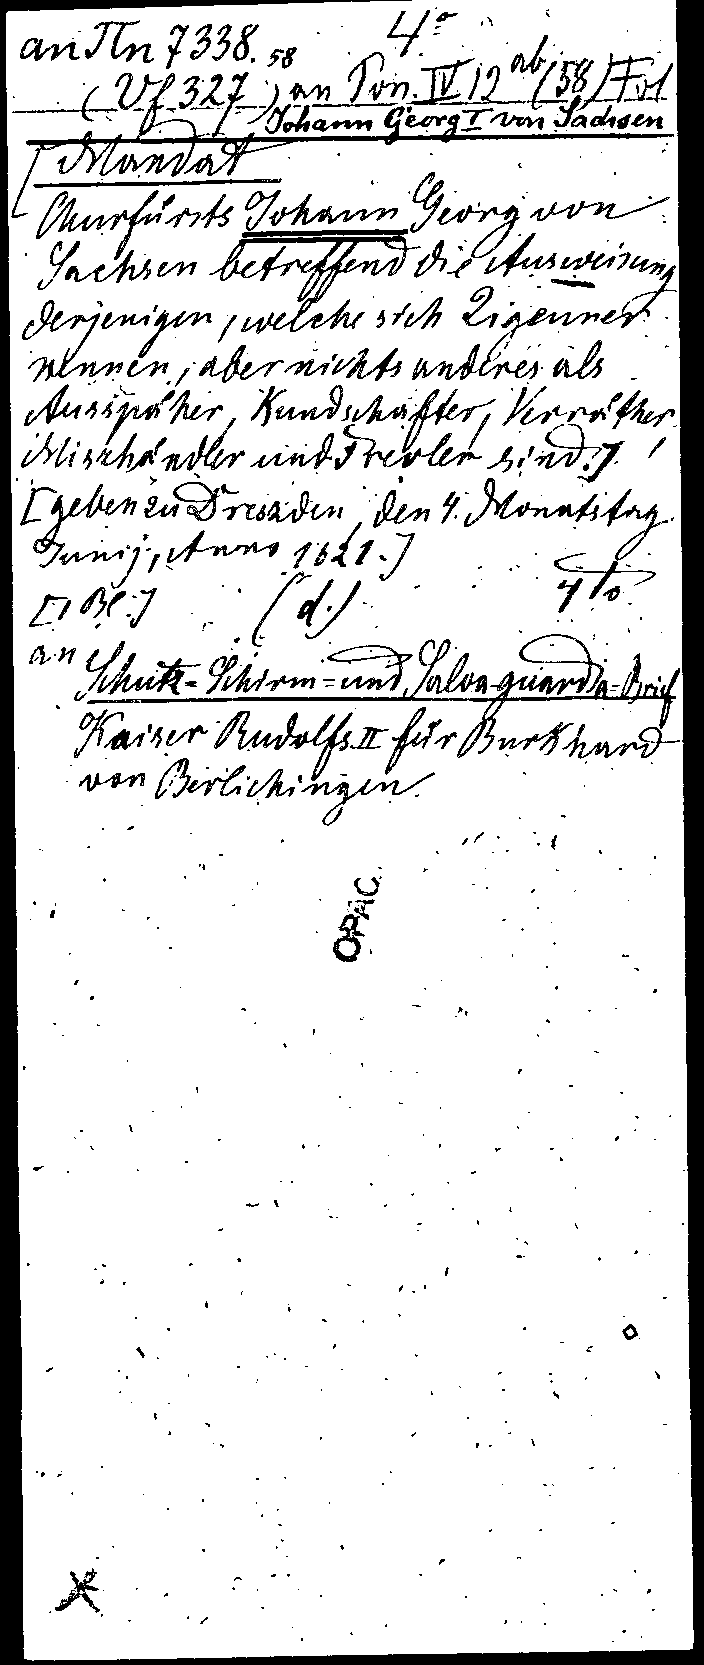 an Πn 7338. 58 4°
(Vf 327) an Pon. IV 12 ab (58) Fol
Johann Georg I von Sachsen
[Mandat
Churfürsts Johann Georg von
Sachsen betreffend die Ausweisung
derjenigen, welche sich Zigeuner
nennen, aber nichts anderes als
Ausspäher, Kundschafter, Verräther
Mishändler und Frevler sind.]
[geben zu Dreszden, den 4. Monatstag
Junij, Anno 1621.]
[1 Bl.] (d.) 4to
an
Schutz- Schirm- und Salva-guardia-Brief
Kaiser Rudolfs II für Burkhard
von Berlichingen.
OPAC